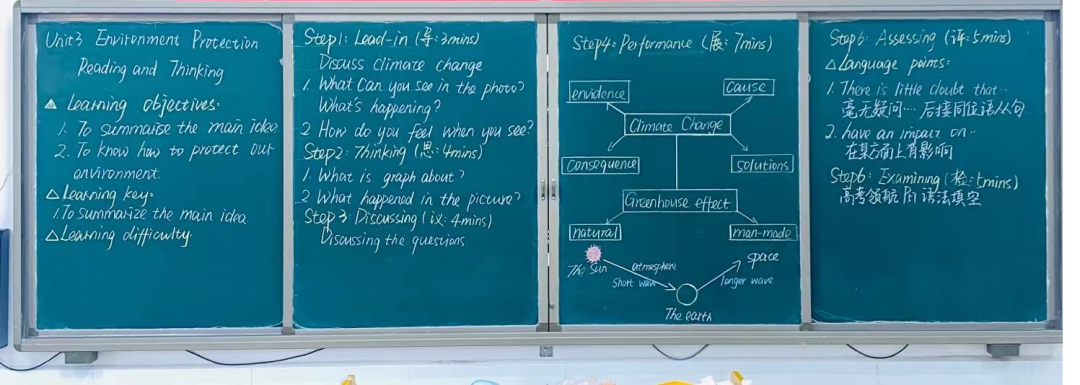 Unit3 Environment Protection
Reading and Thinking
▲ Learning objectives:
1. To summarise the main idea
2. To know how to protect out
environment.
△Learning key:
1. To summarize the main idea
△Learning difficulty:
Step1: Lead-in (导:3mins)
Discuss climate change
1. What can you see in the photo?
What's happening?
2 How do you feel when you see?
Step2: Thinking (思:4mins)
1. What is graph about?
2 What happened in the picture?
Step3: Discussing (议:4mins)
Disassing the questions.
Step4: Performance (展:7mins)
envidence
cause
Climate Change
consequence
solutions
Greenhouse effect
natural
man-made
The Sun
atmosphere
short wave
space
longer wave
The earth
Step6: Assessing (评:5mins)
△Language points:
1. There is little doubt that…
毫无疑问… 后接同位语从句
2. have an impact on…
在某方面上有影响
Step6: Examining (检:5mins)
高考领航 语法填空